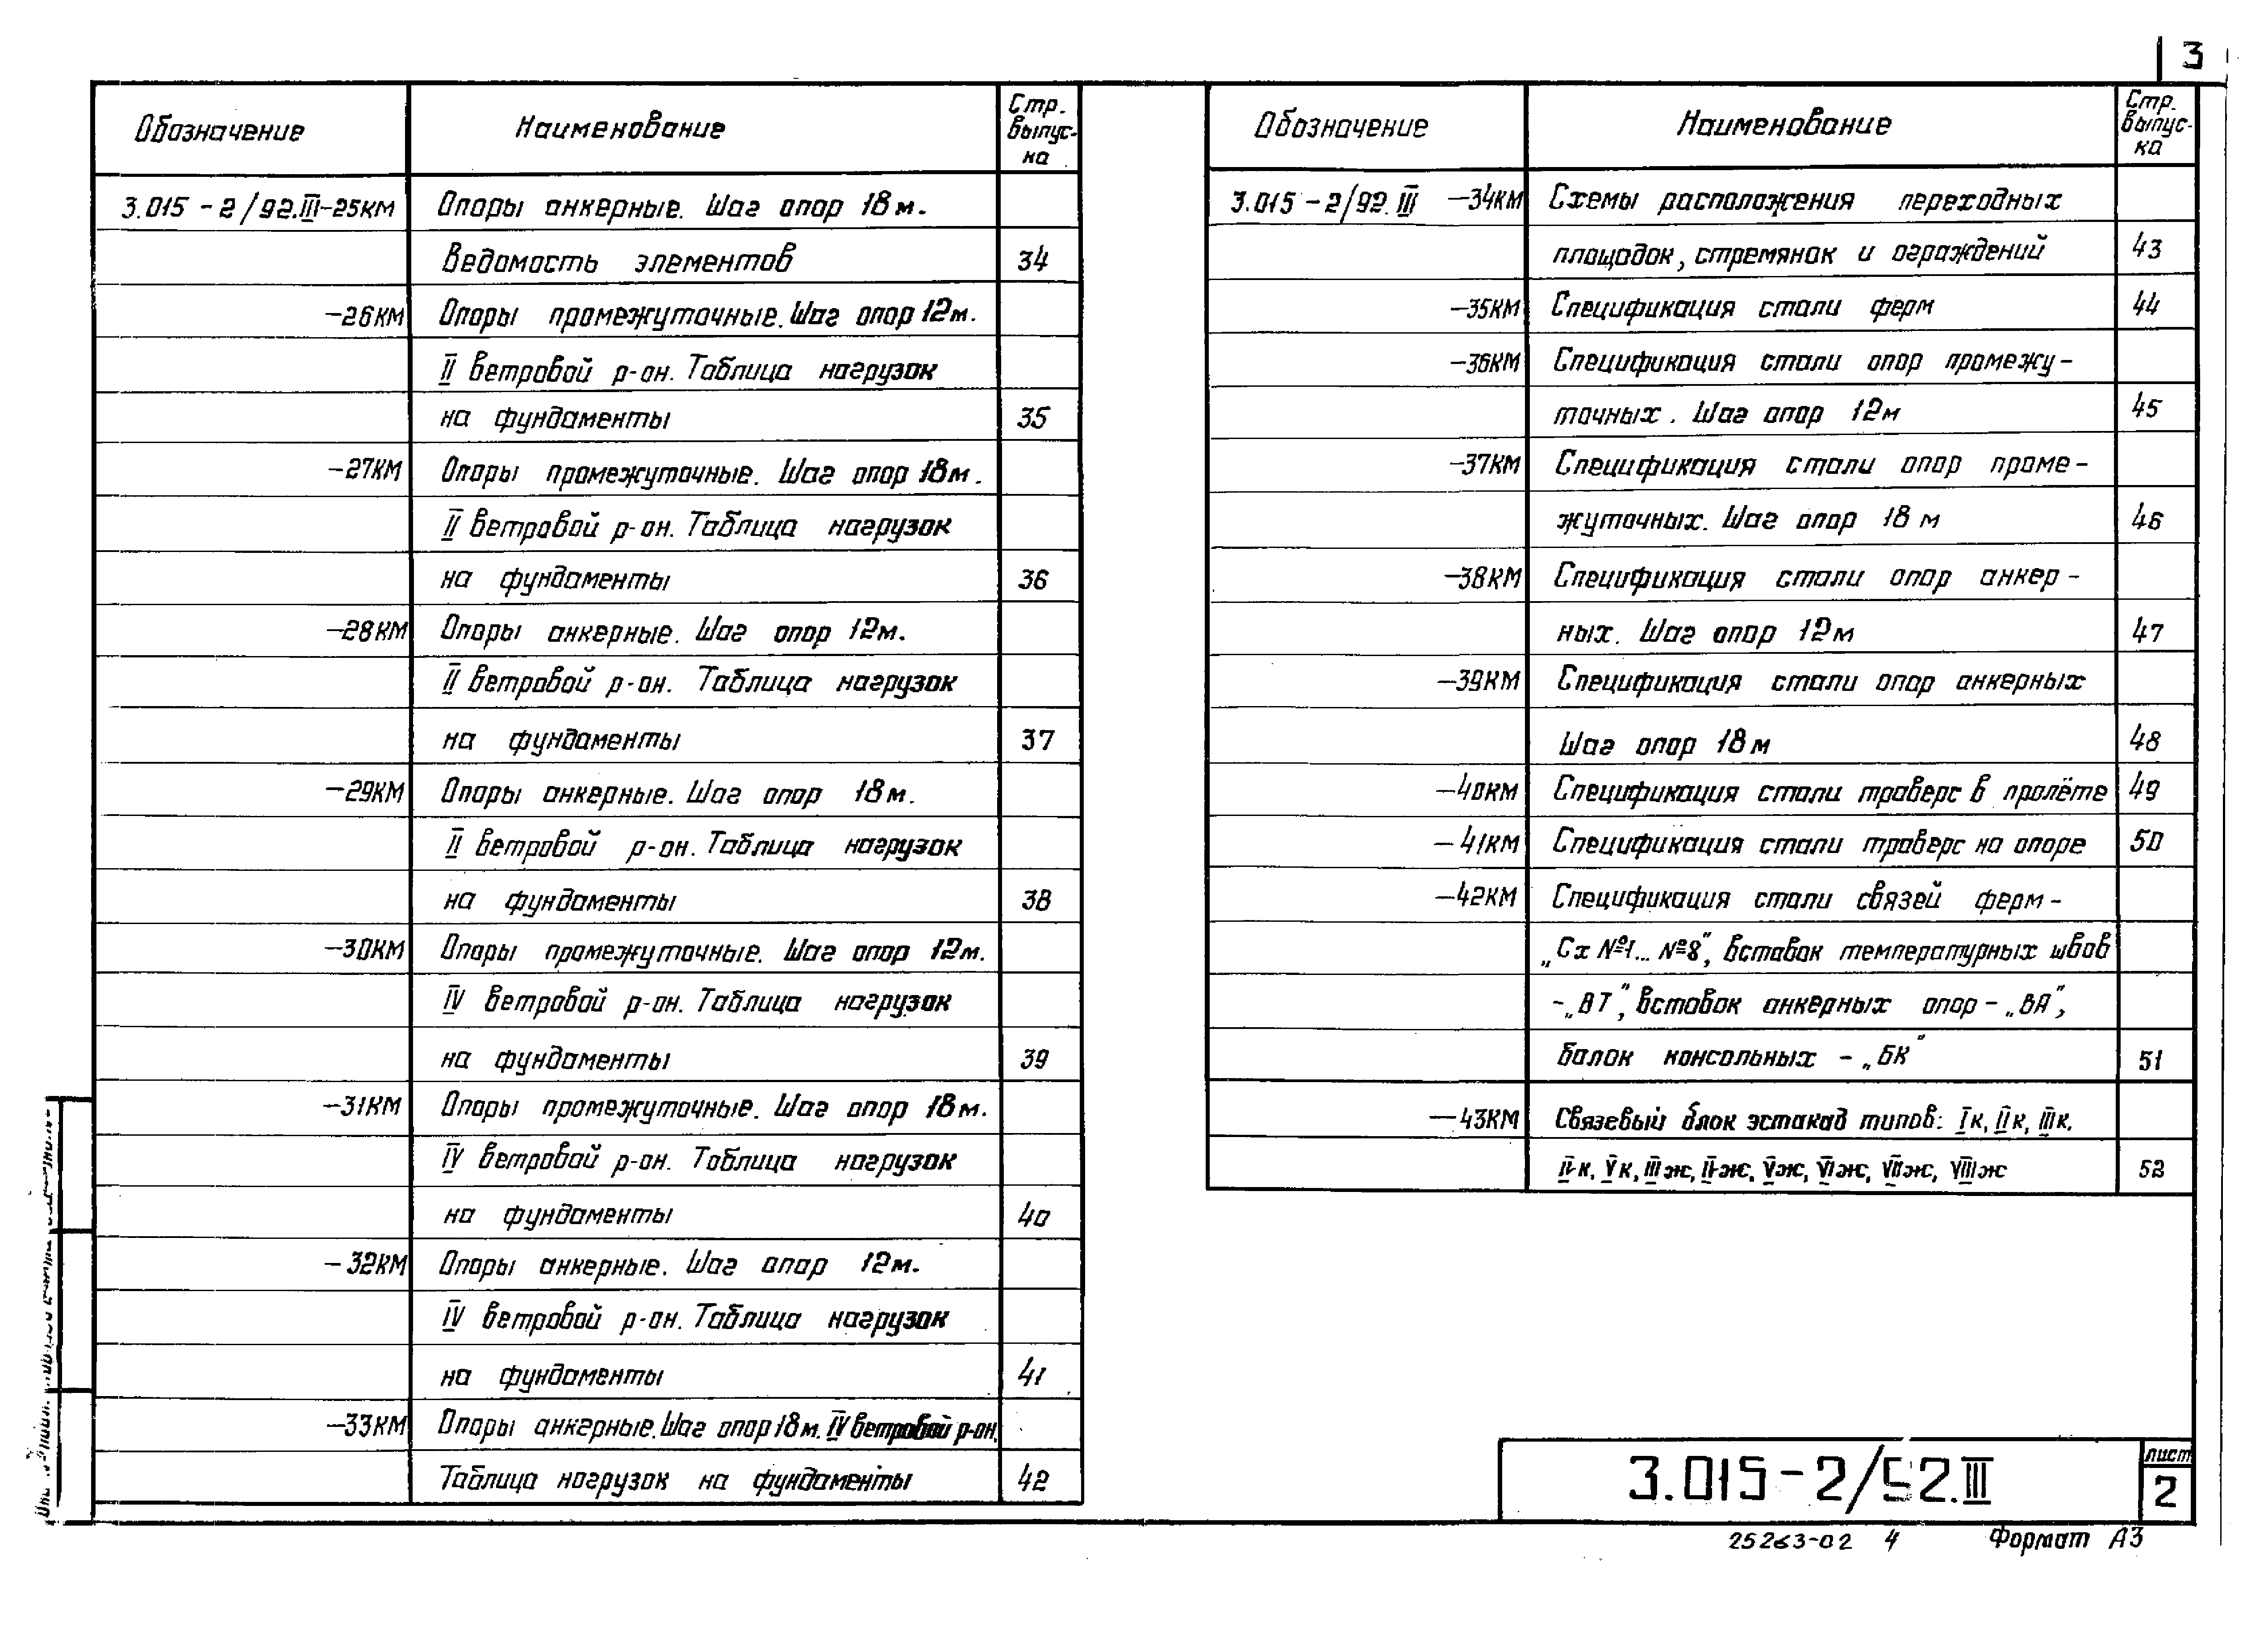 3
Обозначение Наименование Стр. выпус-ка
3.015-2/92.III-25КМ Опоры анкерные. Шаг опор 18м.
Ведомость элементов 34
-26КМ Опоры промежуточные. Шаг опор 12м.
II ветровой р-он. Таблица нагрузок
на фундаменты 35
-27КМ Опоры промежуточные. Шаг опор 18м.
II ветровой р-он. Таблица нагрузок
на фундаменты 36
-28КМ Опоры анкерные. Шаг опор 12м.
II ветровой р-он. Таблица нагрузок
на фундаменты 37
-29КМ Опоры анкерные. Шаг опор 18м.
II ветровой р-он. Таблица нагрузок
на фундаменты 38
-30КМ Опоры промежуточные. Шаг опор 12м.
IV ветровой р-он. Таблица нагрузок
на фундаменты 39
-31КМ Опоры промежуточные. Шаг опор 18м.
IV ветровой р-он. Таблица нагрузок
на фундаменты 40
-32КМ Опоры анкерные. Шаг опор 12м.
IV ветровой р-он. Таблица нагрузок
на фундаменты 41
-33КМ Опоры анкерные. Шаг опор 18м. IV ветровой р-он.
Таблица нагрузок на фундаменты 42
Обозначение Наименование Стр. выпус-ка
3.015-2/92.III -34КМ Схемы расположения переходных
площадок, стремянок и ограждений 43
-35КМ Спецификация стали ферм 44
-36КМ Спецификация стали опор промежу-
точных. Шаг опор 12м 45
-37КМ Спецификация стали опор проме-
жуточных. Шаг опор 18м 46
-38КМ Спецификация стали опор анкер-
ных. Шаг опор 12м 47
-39КМ Спецификация стали опор анкерных
Шаг опор 18м 48
-40КМ Спецификация стали траверс в пролёте 49
-41КМ Спецификация стали траверс на опоре 50
-42КМ Спецификация стали связей ферм-
„Сх №1... №8", вставок температурных швов
-„ВТ", вставок анкерных опор-„ВА",
балок консольных -„БК" 51
-43КМ Связевый блок эстакад типов: Iк, IIк, IIIк,
IVк, Vк, IIIж, IVж, Vж, VIж, VIIж, VIIIж 52
3.015-2/92.III
лист
2
25263-02 4 Формат А3